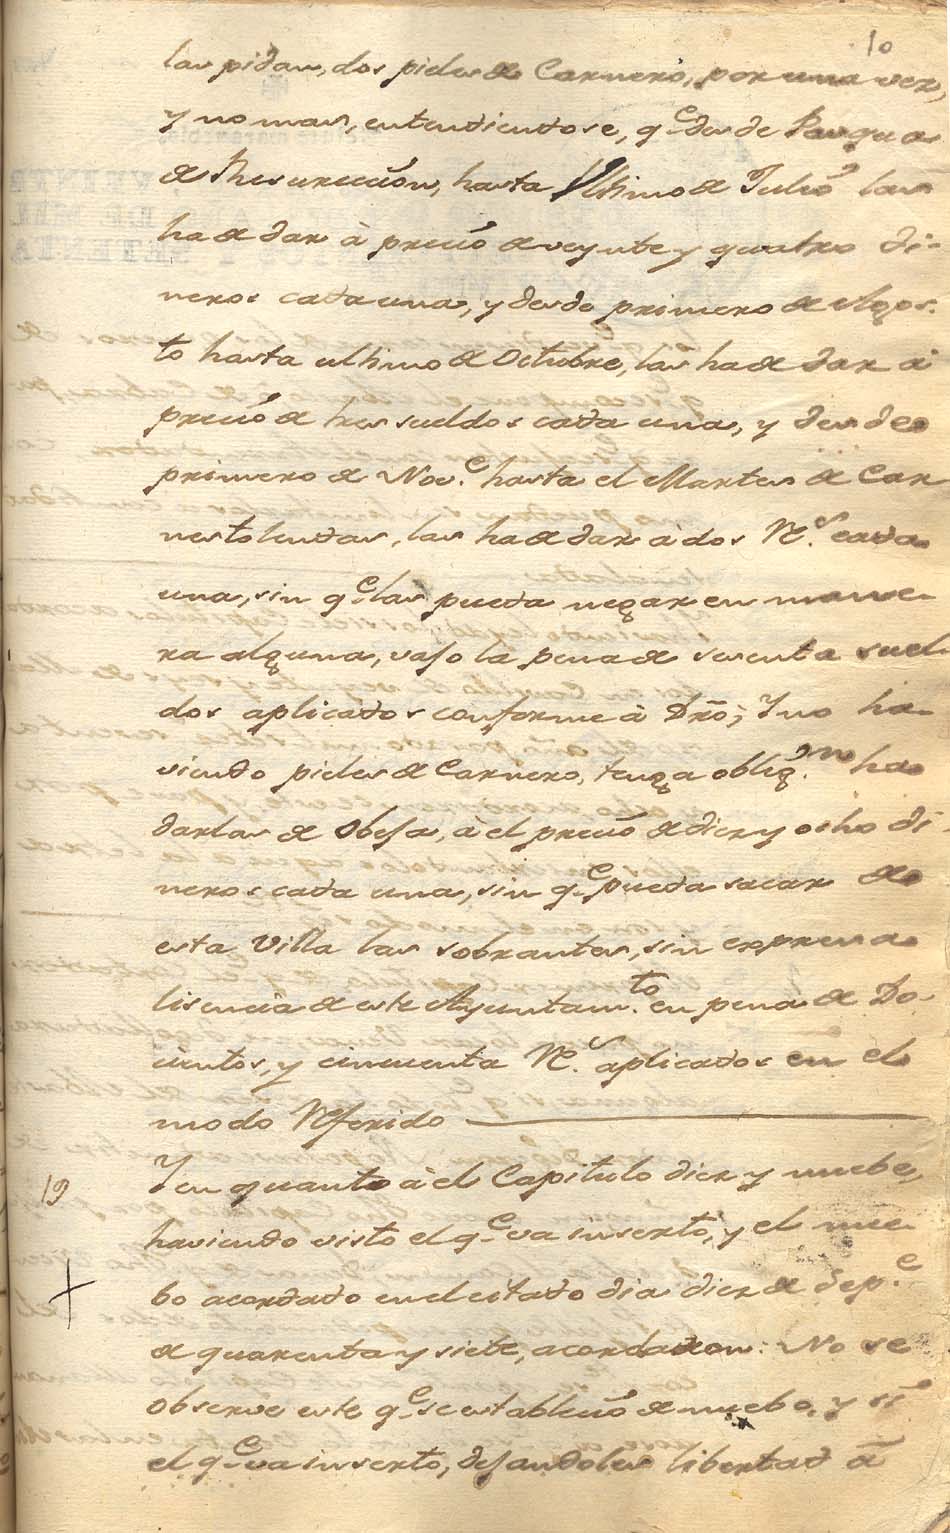 10
las pidan, dos pieles de Carnero, por una vez,
y no mas, entendiendose, q.e desde Pasqua
de Resureccion, hasta Ultimo de Julio las
ha de dar à precio de veynte y quatro di-
neros cada una, y desde primero de Agos-
to hasta ultimo de Octubre, las ha de dar à
precio de tres sueldos cada una, y desde
primero de Nov.e hasta el Martes de Car
nestolendas, las ha de dar à dos R.s cada
una, sin q.e las pueda negar en mane-
ra alguna, vajo la pena de sesenta suel
dos aplicados conforme à Dro; Y no ha-
viendo pieles de Carnero, tenga oblig.on ha
darlas de Obeja, à el precio de diez y ocho di
neros cada una, sin q.e pueda sacar de
esta Villa las sobrantes, sin expresa
lisencia de este Ayuntam.to en pena de Do-
cientos, y cinquenta R.s aplicados en el
modo Referido
19 Y en quanto à el Capitulo diez y nuebe,
haviendo visto el q.e va inserto, y el nue-
bo acordado en el citado dia diez de Sep.e
de quarenta y siete, acordaron: No se
observe este q.e se establecio de nuebo, y si
el q.e va inserto, dejandoles libertad à